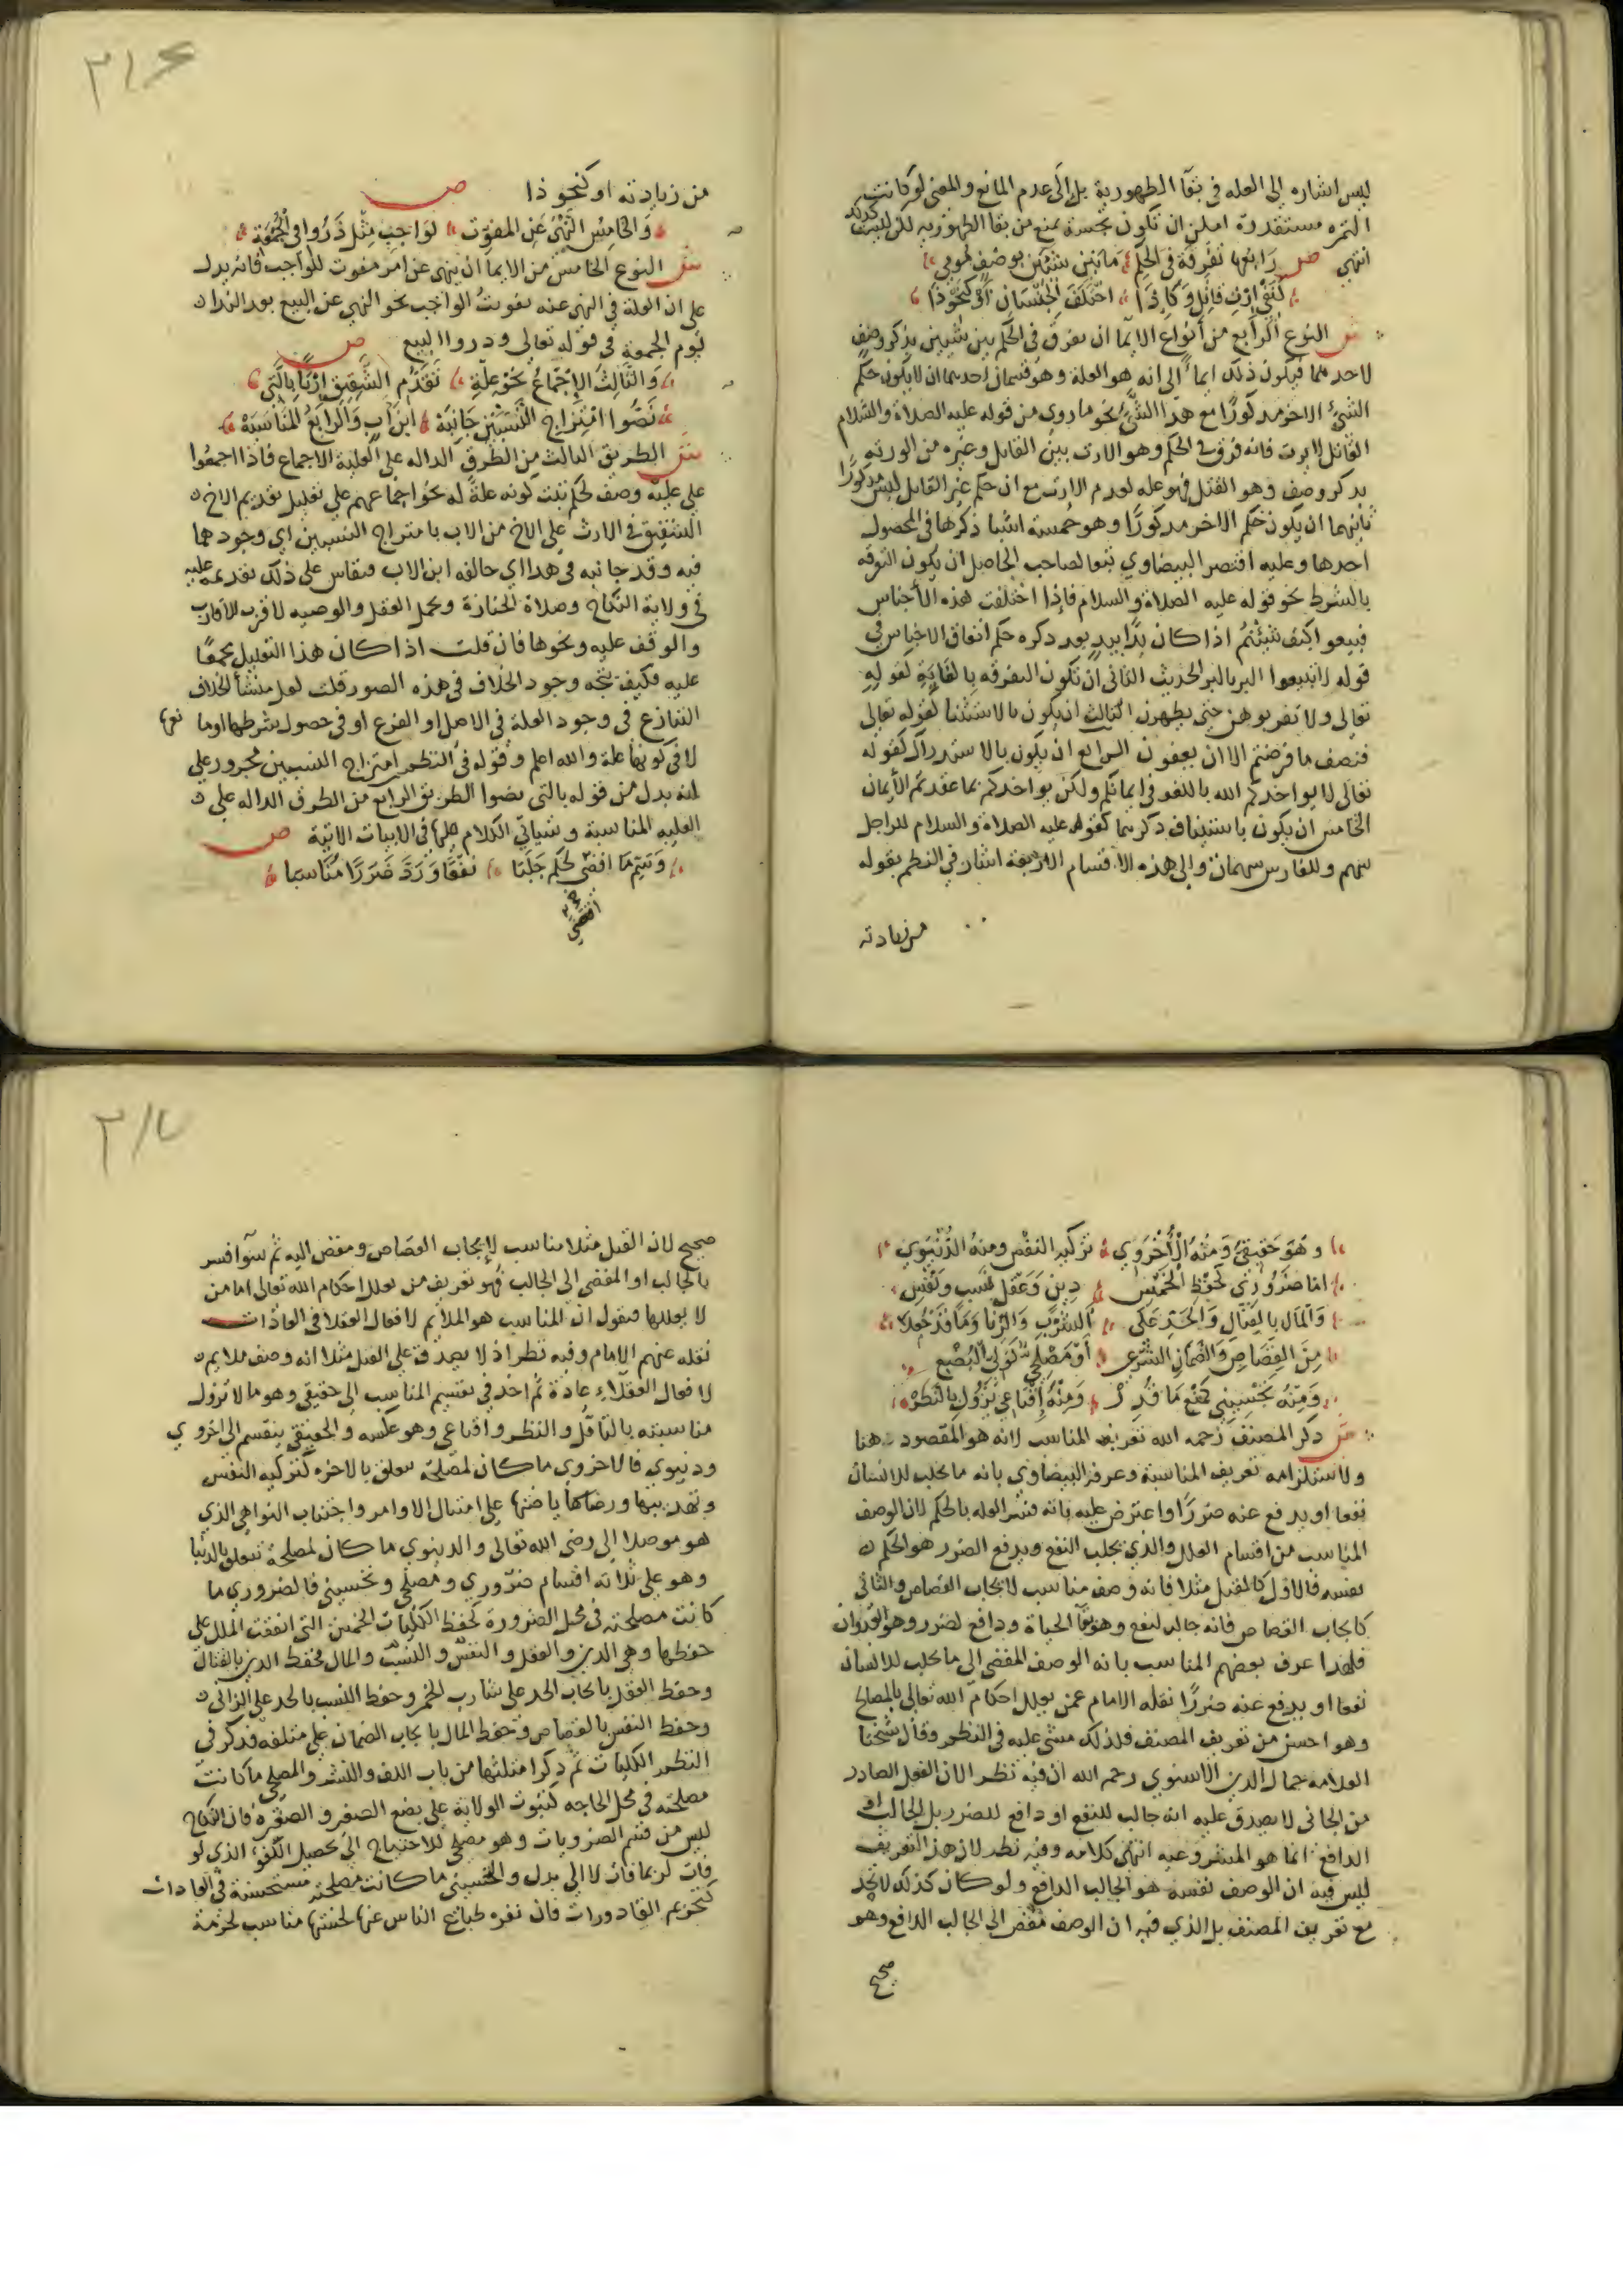 ليس اشاره الى العله في بقا الطهورية بل الى عدم المانع والمعنى لو كانت
التمره مستقدرة امكن ان تكون نجسة تمنع من بقا الطهوريه لكن ليست كذلك
انتهى ص رابعها تفرقة في الحكم ما بين شيئين بوصف مومي
كنفي ارث قاتل وكاذا اختلف الجنسان او كنحو ذا
ش النوع الرابع من أنواع الايما ان يفرق في الحكم بين شيين بذكر وصف
لاحدهما فيكون ذلك ايماءً الى انه هو العلة وهو قسمان احدهما ان لا يكون حكم
الشيئ الاخر مدكورًا مع هذا الشيئ نحو ما روي من قوله عليه الصلاة والسلام
القاتل لا يرث فانه فرق في الحكم وهو الارث بين القاتل وغيره من الورثه
بدكر وصف وهو القتل فهو عله لعدم الارث مع ان حكم غير القاتل ليس مدكورًا
ثانيهما ان يكون حكم الاخر مدكورًا وهو خمسة اشيا ذكرها في المحصول
احدها وعليه اقتصر البيضاوي تبعا لصاحب الحاصل ان يكون التفرقه
بالشرط نحو قوله عليه الصلاة والسلام فإذا اختلفت هذه الأجناس
فبيعوا كيف شئتم اذا كان يدًا بيد بعد دكره حكم اتفاق الاجناس في
قوله لا تبيعوا البر بالبر الحديث الثاني أن تكون التفرقه بالغاية كقوله
تعالى ولا تقربوهن حتى يطهرن الثالث ان يكون بالاستثنا كقوله تعالى
فنصف ما فرضتم الا ان يعفون الرابع ان يكون بالاستدراك كقوله
تعالى لا يواخدكم الله باللغو في ايمانكم ولكن يواخدكم بما عقدتم الأيمان
الخامس ان يكون باستيناف دكرهما كقوله عليه الصلاة والسلام للراجل
سهم وللفارس سهمان والى هذه الاقسام الاربعة اشار في النظم بقوله
من زيادته
٣١٤
من زيادته او كنحو ذا ص
والخامس النهي عن المفوت لواجب مثل ذروا في الجمعة
ش النوع الخامس من الايما ان ينهى عن امر مفوت للواجب فانه يدل
على ان العلة في النهي عنه تفويت الواجب نحو النهي عن البيع بعد الندا
يوم الجمعة في قوله تعالى ودروا البيع ص
والثالث الإجماع نحو علة تقدم الشقيق ارثا بالتي
نصوا امتزاج النسبين جانبه ابن اب والرابع المناسبة
ش الطريق الثالث من الطرق الداله على العلية الاجماع فاذا اجمعوا
على علية وصف لحكم ثبت كونه علة له نحو اجماعهم على تعليل تقديم الاخ
الشقيق في الارث على الاخ من الاب بامتراج النسبين اي وجودهما
فيه وقد جانبه في هدا اي خالفه ابن الاب فيقاس على ذلك تقديمه عليه
في ولاية النكاح وصلاة الجنازة وتحمل العقل والوصيه لاقرب الاقارب
والوقف عليه ونحوها فان قلت اذا كان هذا التعليل مجمعًا
عليه فكيف يتجه وجود الخلاف في هذه الصور قلت لعل منشأ الخلاف
التنازع في وجود العلة في الاصل او الفرع او في حصول شرطها او مانعها
لا في كونها علة والله اعلم وقوله في النظم امتزاج النسبين مجرور على
انه بدل من قوله بالتي نصوا الطريق الرابع من الطرق الداله على
العليه المناسبة وسياتي الكلام عليها في الابيات الاتية ص
وتتم ما افضى لحكم جلبا نفعًا ورد ضررًا مناسبا
اقتضى
وهو حقيقي ومنه الأخروي تزكية النفس ومنه الدنيوي
اما ضروري كحفظ الخمس دين وعقل نسب ونفس
والمال بالقتال والحد على الشرب والزنا وما قد
من القصاص والضمان الشرعي أو مصلحي كولي البضع
ومنه تحسيني كمنع ما قذر ومنه إقناعي يزول بالنظر
ش دكر المصنف رحمه الله تعريف المناسب لانه هو المقصود هنا
ولاستلزامه تعريف المناسبة وعرفه البيضاوي بانه ما يجلب للانسان
نفعا او يدفع عنه ضررًا واعترض عليه بانه فسر العله بالحكم لان الوصف
المناسب من اقسام العلل والذي يجلب النفع ويدفع الضرر هو الحكم
نفسه فالاول كالقتل مثلا فانه وصف مناسب لايجاب القصاص والثاني
كايجاب القصاص فانه جالب لنفع وهو بقا الحياة ودافع لضرر وهو العدوان
فلهدا عرف بعضهم المناسب بانه الوصف المفضي الى ما يجلب للانسان
نفعا او يدفع عنه ضررًا نقله الامام عمن يعلل احكام الله تعالى بالمصالح
وهو احسن من تعريف المصنف فلذلك مشى عليه في النظم وقال شيخنا
العلامه جمال الدين الاسنوي رحمه الله ان فيه نظرا لان الفعل الصادر
من الجاني لا يصدق عليه انه جالب للنفع او دافع للضرر بل الجالب او
الدافع انما هو المشروعيه انتهى كلامه وفيه نظر لان هذا التعريف
ليس فيه ان الوصف نفسه هو الجالب الدافع ولو كان كذلك لاتحد
مع تعريف المصنف بل الذي فيه ان الوصف مفض الى الجالب الدافع وهو
صحيح
٣١٥
صحيح لان القتل مثلا مناسب لإيجاب القصاص ومفض اليه ثم سوآ فسر
بالجالب او المفضي الى الجالب فهو تعريف من يعلل احكام الله تعالى اما من
لا يعللها فيقول ان المناسب هو الملائم لافعال العقلا في العادات
نقله عنهم الامام وفيه نظر اذ لا يصدق على القتل مثلا انه وصف ملايم
لافعال العقلاء عادة ثم اخذ في تقسيم المناسب الى حقيقي وهو ما لا تزول
مناسبته بالتأمل والنظر واقناعي وهو عكسه والحقيقي ينقسم الى اخروي
ودنيوي فالاخروي ما كان لمصلحة تتعلق بالاخره كتزكيه النفس
وتهديبها ورضاها ياضتها على امتثال الاوامر واجتناب النواهي الذي
هو موصل الى رضى الله تعالى والدينوي ما كان لمصلحة تتعلق بالدنيا
وهو على ثلاثه اقسام ضروري ومصلحي وتحسيني فالضروري ما
كانت مصلحته في محل الضرورة كحفظ الكليات الخمس التي اتفقت الملل على
حفظها وهي الدين والعقل والنفس والنسب والمال فحفظ الدين بالقتال
وحفظ العقل بايجاب الحد على شارب الخمر وحفظ النسب بالحد على الزاني
وحفظ النفس بالقصاص وحفظ المال بايجاب الضمان على متلفه فدكر في
النظم الكليات ثم ذكر امثلتها من باب اللف والنشر والمصلحي ما كانت
مصلحته في محل الحاجه كثبوت الولاية على بضع الصغير والصغيره فان النكاح
ليس من قسم الضروريات وهو مصلحي للاحتياج الى تحصيل الكفو الذي لو
فات لربما فات لا الى بدل والتحسيني ما كانت مصلحته مستحسنة في العادات
كتحريم القادورات فان نفره طبايع الناس عنها لخستها مناسب لحرمة